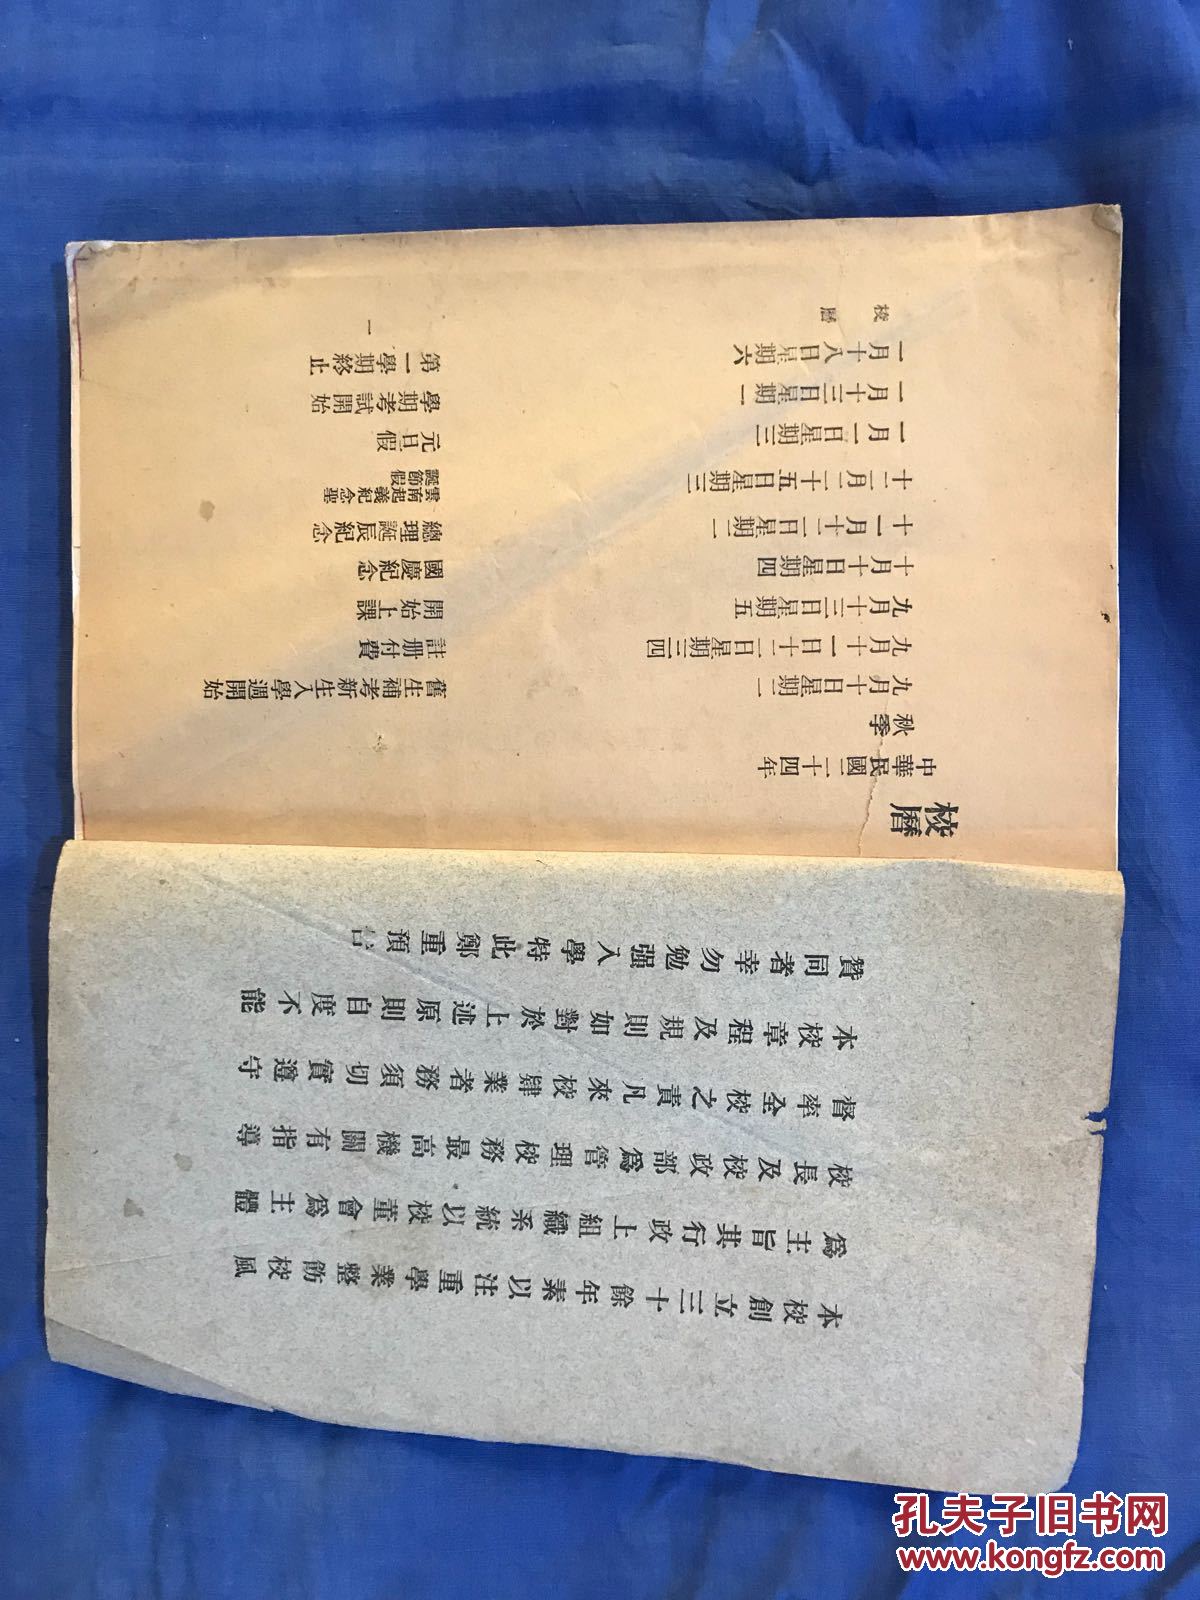 本校創立三十餘年素以注重學業整飭校風
爲主旨其行政上組織系統以校董會爲主體
校長及校政部爲管理校務最高機關有指導
督率全校之責凡來校肄業者務須切實遵守
本校章程及規則如對於上述原則自度不能
贊同者幸勿勉强入學特此鄭重預告
校曆
中華民國二十四年
秋季
九月十日星期二 舊生補考新生入學週開始
九月十一日十二日星期三四 註册付費
九月十三日星期五 開始上課
十月十日星期四 國慶紀念
十一月十二日星期二 總理誕辰紀念
十二月二十五日星期三 雲南起義紀念聖
誕節假
一月一日星期三 元旦假
一月十三日星期一 學期考試開始
一月十八日星期六 第一學期終止
校曆 一
孔夫子旧书网
www.kongfz.com